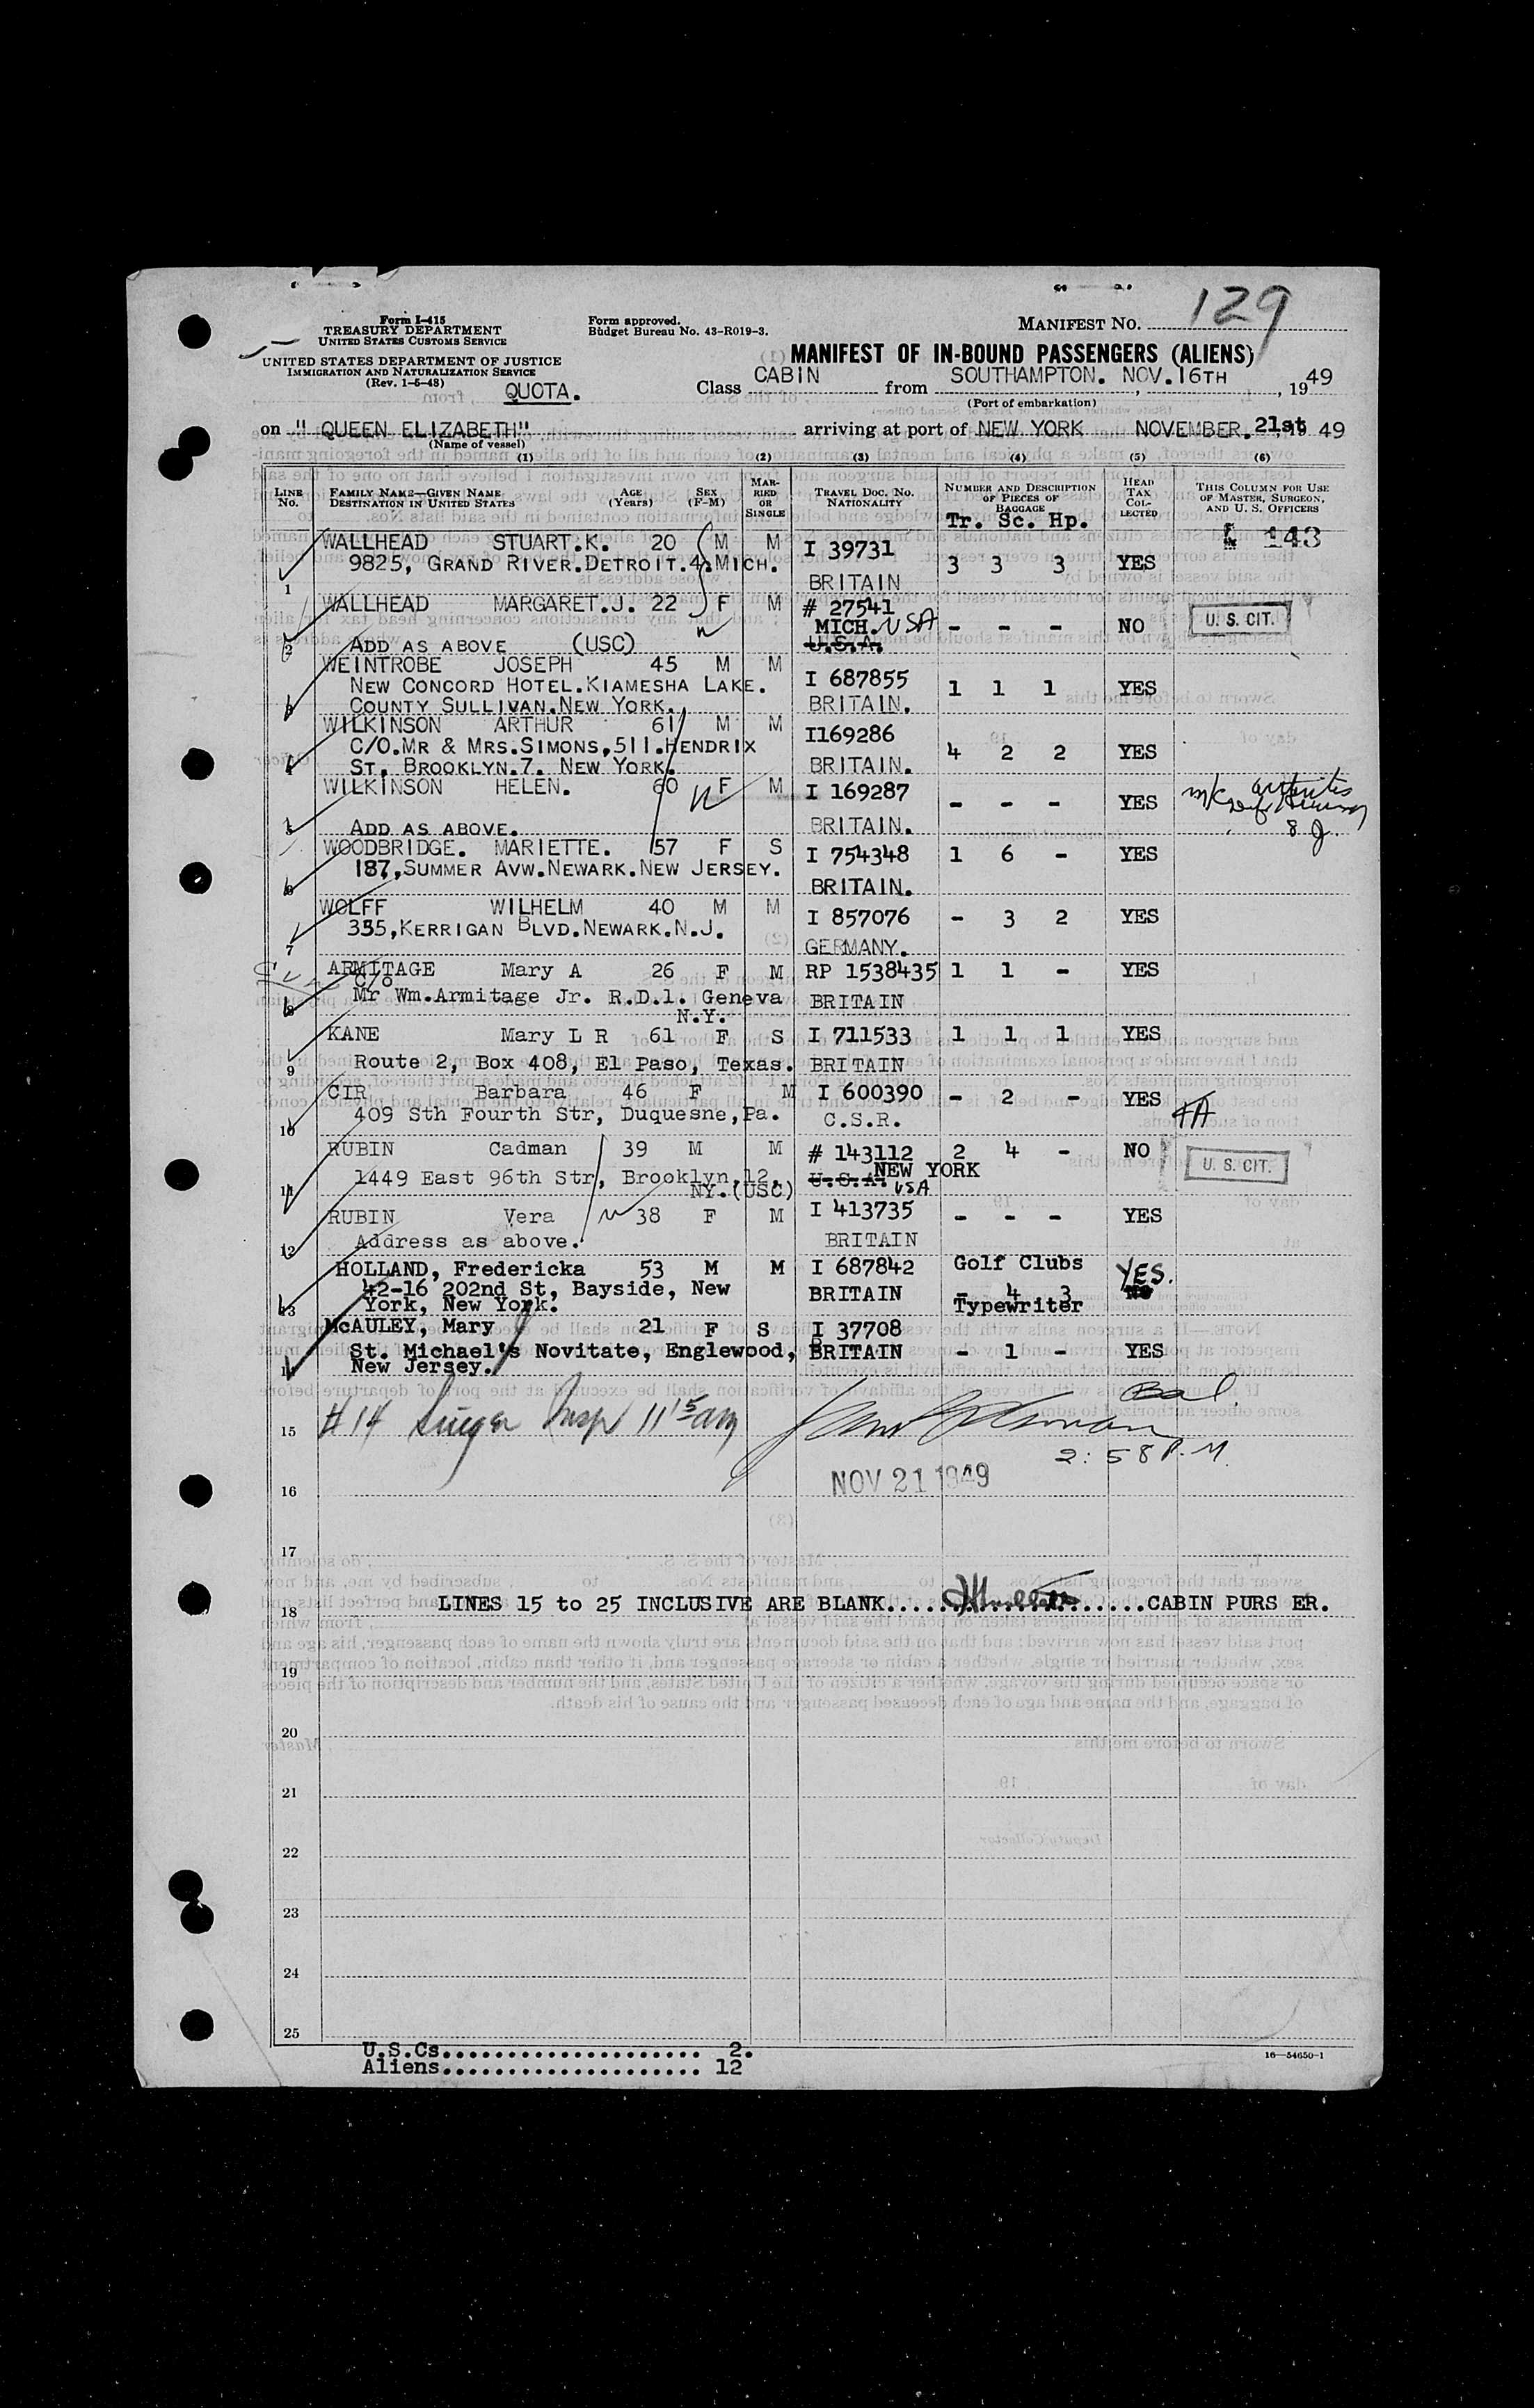 Form I-415
TREASURY DEPARTMENT
UNITED STATES CUSTOMS SERVICE
UNITED STATES DEPARTMENT OF JUSTICE
IMMIGRATION AND NATURALIZATION SERVICE
(Rev. 1-5-48)
QUOTA.
Form approved.
Budget Bureau No. 43-R019-3.
MANIFEST NO. 129
MANIFEST OF IN-BOUND PASSENGERS (ALIENS)
Class CABIN from SOUTHAMPTON. NOV.16TH, 1949
(Port of embarkation)
on "QUEEN ELIZABETH" arriving at port of NEW YORK NOVEMBER. 21st 49
(Name of vessel)
(1) (2) (3) (4) (5) (6)
LINE NO. FAMILY NAME—GIVEN NAME DESTINATION IN UNITED STATES AGE (Years) SEX (F-M) MARRIED OR SINGLE TRAVEL DOC. NO. NATIONALITY NUMBER AND DESCRIPTION OF PIECES OF BAGGAGE HEAD TAX COLLECTED THIS COLUMN FOR USE OF MASTER, SURGEON, AND U. S. OFFICERS
Tr. Sc. Hp.
143
WALLHEAD STUART.K. 20 M M I 39731 3 3 3 YES
9825, GRAND RIVER.DETROIT.4.MICH. BRITAIN
1
WALLHEAD MARGARET.J. 22 F M # 27541 - - - NO U. S. CIT.
MICH. USA
2 ADD AS ABOVE (USC) U.S.A.
WEINTROBE JOSEPH 45 M M I 687855 1 1 1 YES
NEW CONCORD HOTEL.KIAMESHA LAKE.
3 COUNTY SULLIVAN.NEW YORK. BRITAIN.
WILKINSON ARTHUR 61 M M I169286 4 2 2 YES
C/O.MR & MRS.SIMONS,511.HENDRIX
4 ST. BROOKLYN.7. NEW YORK. BRITAIN.
WILKINSON HELEN. 60 F M I 169287 - - - YES arthritis
5 ADD AS ABOVE. BRITAIN.
WOODBRIDGE. MARIETTE. 57 F S I 754348 1 6 - YES
187,SUMMER AVW.NEWARK.NEW JERSEY.
6 BRITAIN.
WOLFF WILHELM 40 M M I 857076 - 3 2 YES
335,KERRIGAN BLVD.NEWARK.N.J.
7 GERMANY.
ARMITAGE Mary A 26 F M RP 1538435 1 1 - YES
C/o
8 Mr Wm.Armitage Jr. R.D.1. Geneva BRITAIN
N.Y.
KANE Mary L R 61 F S I 711533 1 1 1 YES
9 Route 2, Box 408, El Paso, Texas. BRITAIN
CIR Barbara 46 F M I 600390 - 2 - YES
409 Sth Fourth Str, Duquesne,Pa. C.S.R.
10
RUBIN Cadman 39 M M # 143112 2 4 - NO U. S. CIT.
1449 East 96th Str, Brooklyn,12, U.S.A. NEW YORK
11 NY.(USC) USA
RUBIN Vera 38 F M I 413735 - - - YES
12 Address as above. BRITAIN
HOLLAND, Fredericka 53 M M I 687842 Golf Clubs YES.
42-16 202nd St, Bayside, New BRITAIN - 4 3 No
13 York, New York. Typewriter
McAULEY, Mary 21 F S I 37708
St. Michael's Novitate, Englewood, BRITAIN - 1 - YES
14 New Jersey.
Bal.
15 #14 Insp 11 15 am
2:58 P.M.
NOV 21 1949
16
17
18 LINES 15 to 25 INCLUSIVE ARE BLANK....................CABIN PURS ER.
19
20
21
22
23
24
25
U.S.Cs.................... 2.
Aliens.................... 12
16—54650-1